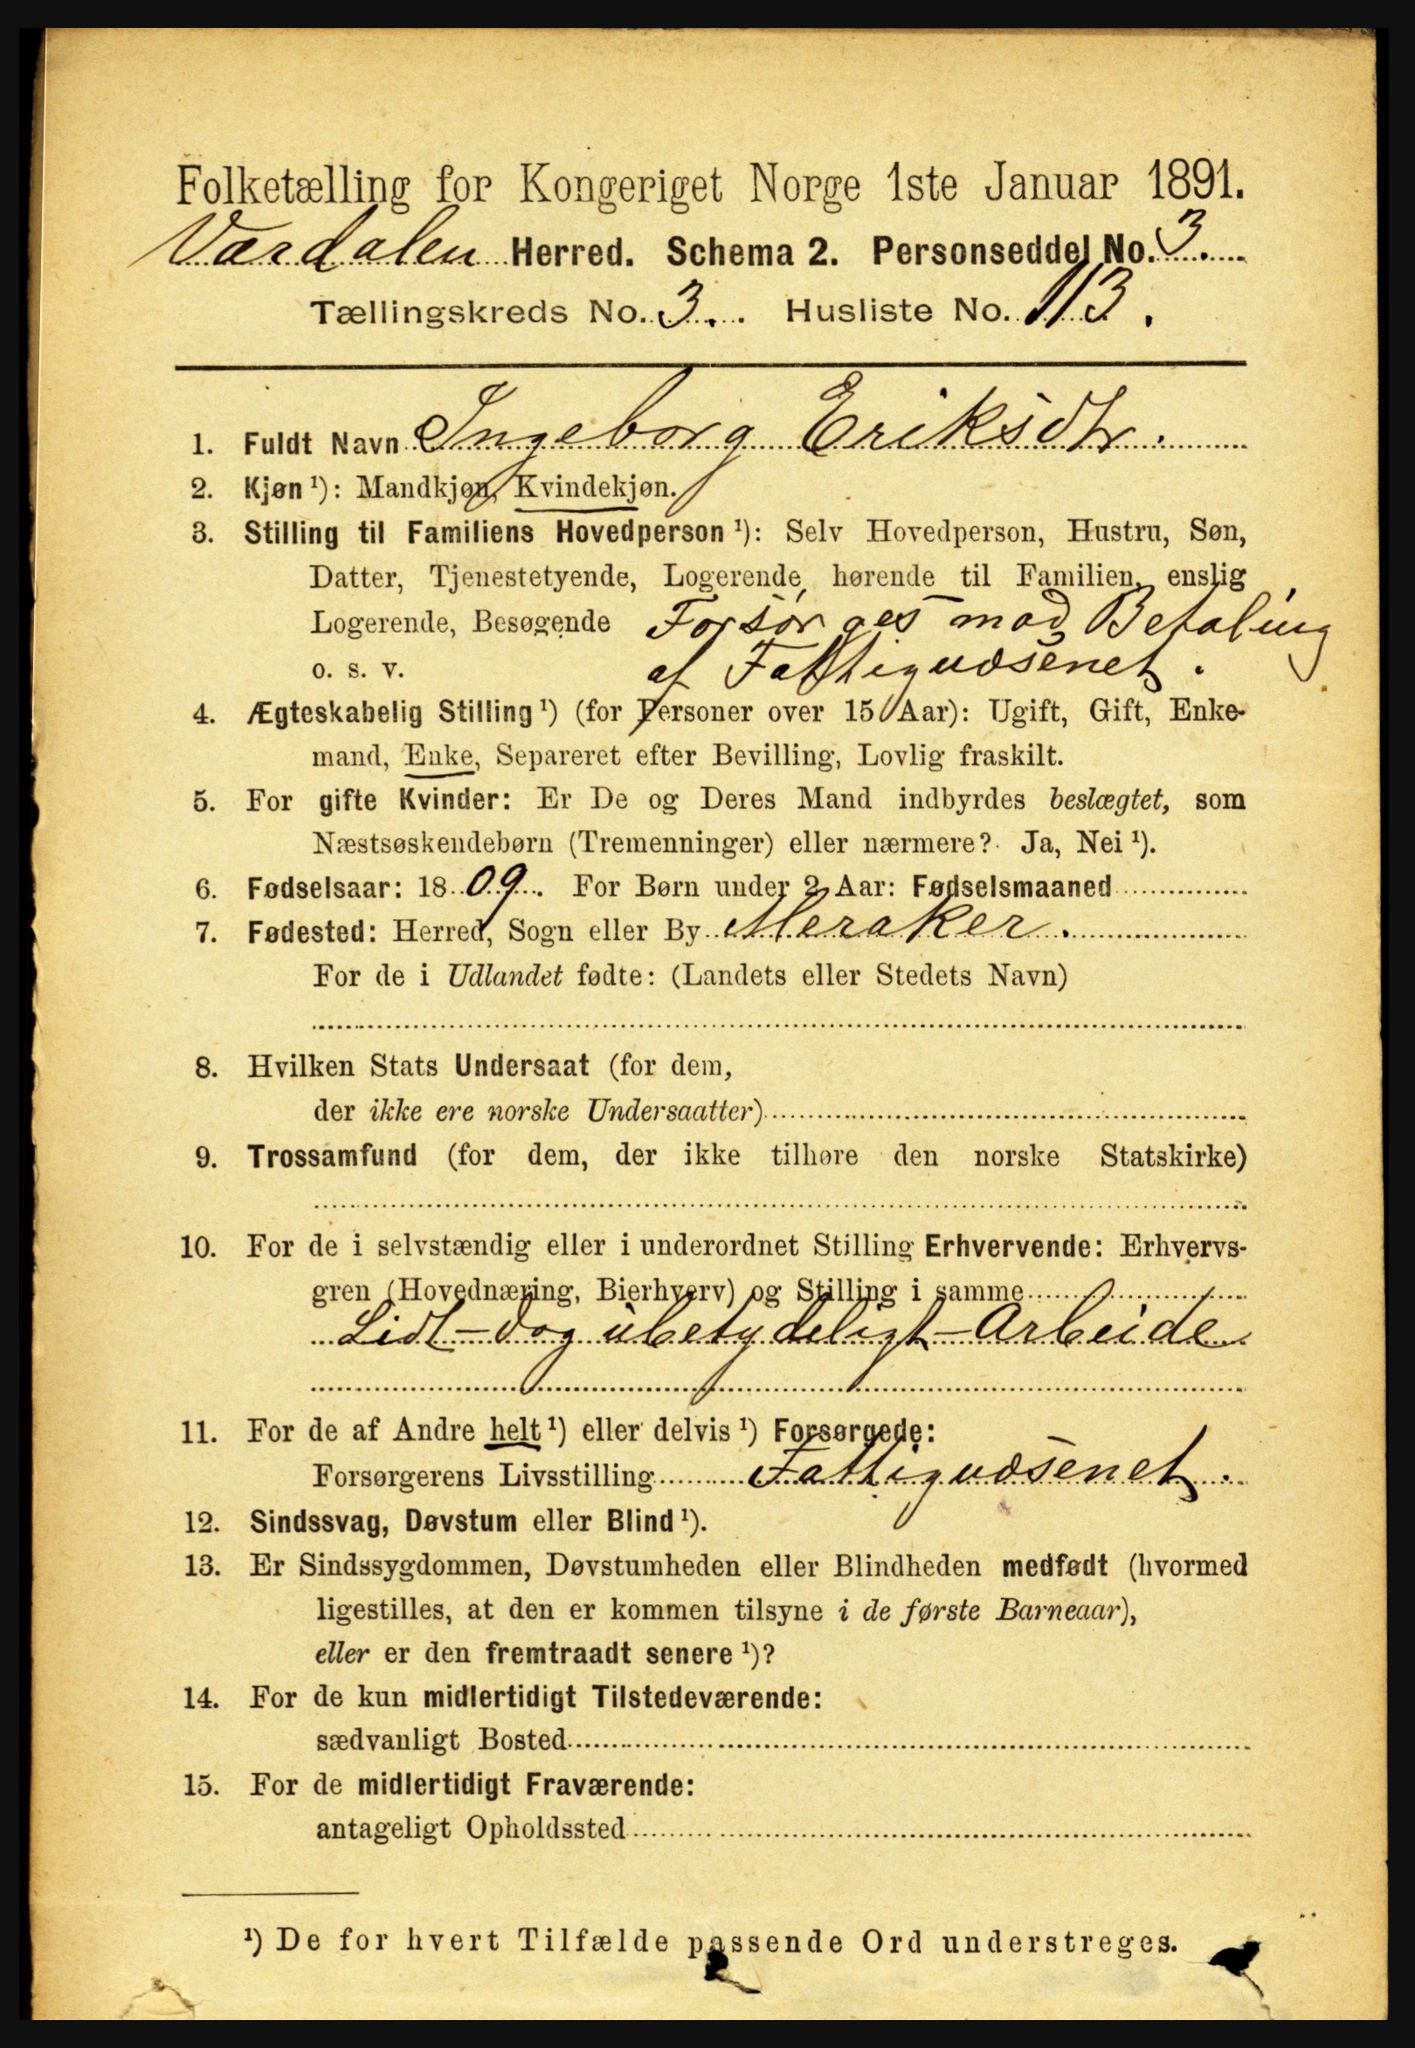 Folketælling for Kongeriget Norge 1ste Januar 1891.
Værdalen Herred. Schema 2. Personseddel No. 3.
Tællingskreds No. 3. Husliste No. 113.
1. Fuldt Navn Ingeborg Eriksdtr.
2. Kjøn ¹): Mandkjøn, Kvindekjøn.
3. Stilling til Familiens Hovedperson ¹): Selv Hovedperson, Hustru, Søn,
Datter, Tjenestetyende, Logerende hørende til Familien, enslig
Logerende, Besøgende Forsørges mod Betaling
o. s. v. af Fattigvæsenet.
4. Ægteskabelig Stilling ¹) (for Personer over 15 Aar): Ugift, Gift, Enke-
mand, Enke, Separeret efter Bevilling, Lovlig fraskilt.
5. For gifte Kvinder: Er De og Deres Mand indbyrdes beslægtet, som
Næstsøskendebørn (Tremenninger) eller nærmere? Ja, Nei ¹).
6. Fødselsaar: 1809. For Børn under 2 Aar: Fødselsmaaned
7. Fødested: Herred, Sogn eller By Meraker.
For de i Udlandet fødte: (Landets eller Stedets Navn)
8. Hvilken Stats Undersaat (for dem,
der ikke ere norske Undersaatter)
9. Trossamfund (for dem, der ikke tilhøre den norske Statskirke)
10. For de i selvstændig eller i underordnet Stilling Erhvervende: Erhvervs-
gren (Hovednæring, Bierhverv) og Stilling i samme
Lidt- og ubetydeligt-Arbeide
11. For de af Andre helt ¹) eller delvis ¹) Forsørgede:
Forsørgerens Livsstilling Fattigvæsenet.
12. Sindssvag, Døvstum eller Blind ¹).
13. Er Sindssygdommen, Døvstumheden eller Blindheden medfødt (hvormed
ligestilles, at den er kommen tilsyne i de første Barneaar),
eller er den fremtraadt senere ¹)?
14. For de kun midlertidigt Tilstedeværende:
sædvanligt Bosted
15. For de midlertidigt Fraværende:
antageligt Opholdssted
¹) De for hvert Tilfælde passende Ord understreges.